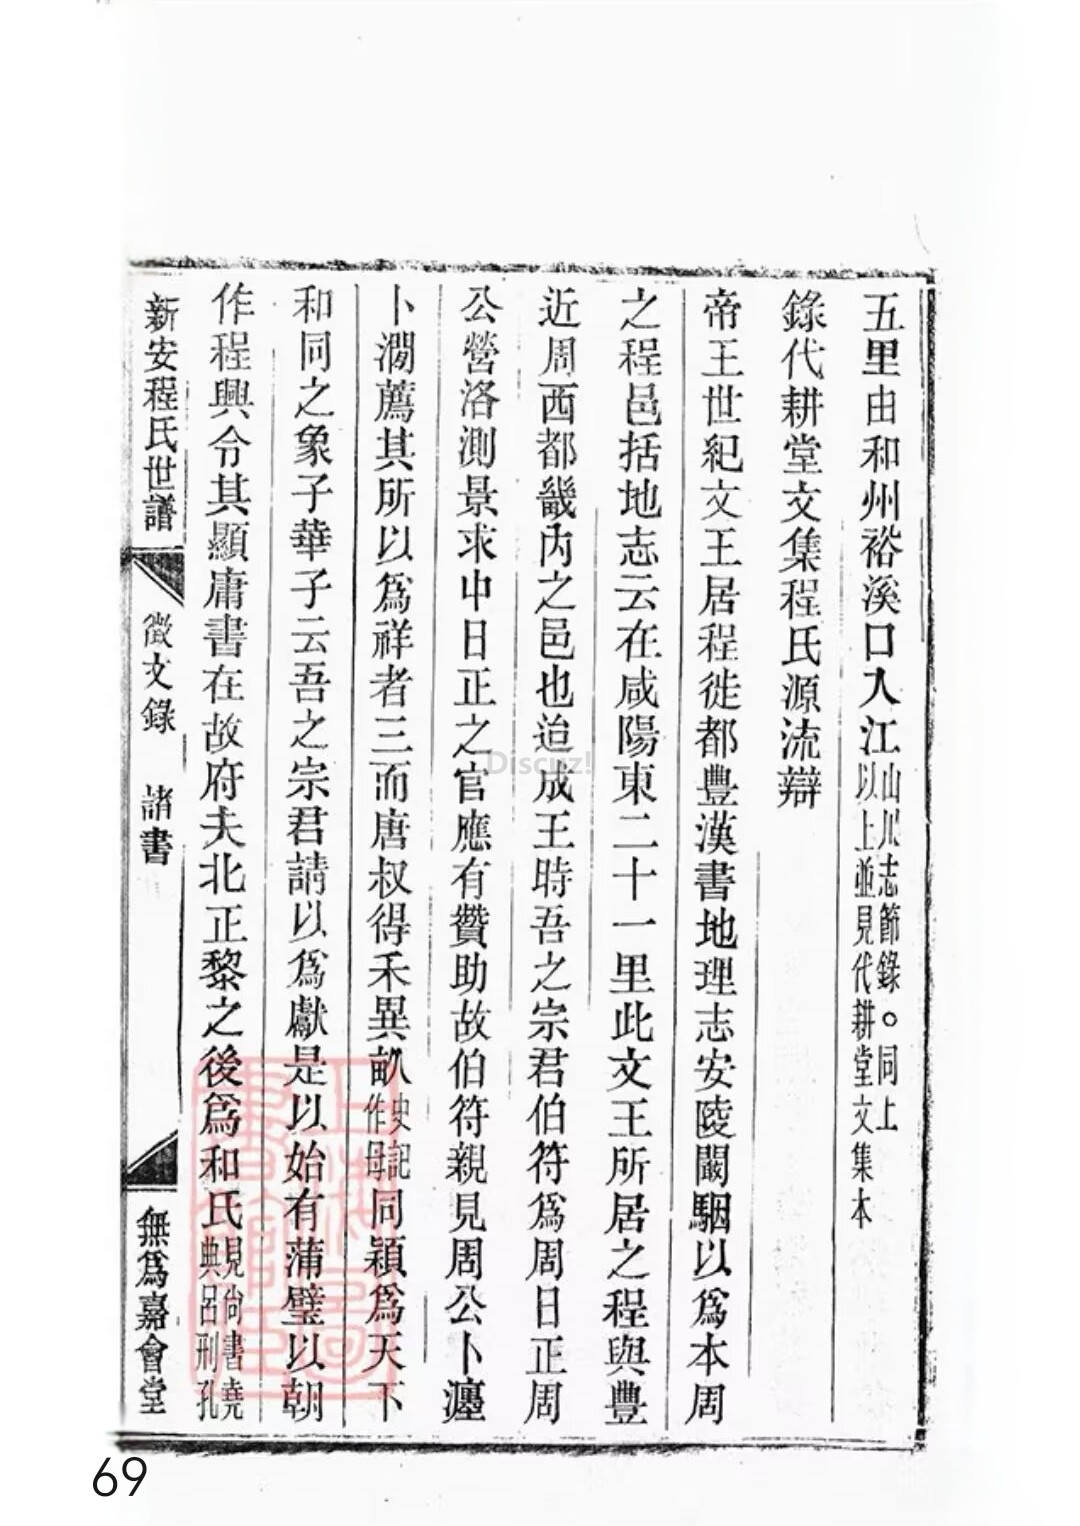 五里由和州裕溪口入江山川志節錄○同上以上並見代耕堂文集本
錄代耕堂文集程氏源流辯
帝王世紀文王居程徙都豐漢書地理志安陵闞駰以爲本周
之程邑括地志云在咸陽東二十一里此文王所居之程與豐
近周西都畿內之邑也迨成王時吾之宗君伯符爲周日正周
公營洛測景求中日正之官應有贊助故伯符親見周公卜瀍
卜澗薦其所以爲祥者三而唐叔得禾異畝史記作母同穎爲天下
和同之象子華子云吾之宗君請以爲獻是以始有蒲璧以朝
作程興令其顯庸書在故府夫北正黎之後爲和氏見尚書堯典呂刑孔
新安程氏世譜
徵文錄 諸書
無爲嘉會堂
Discuz!
69